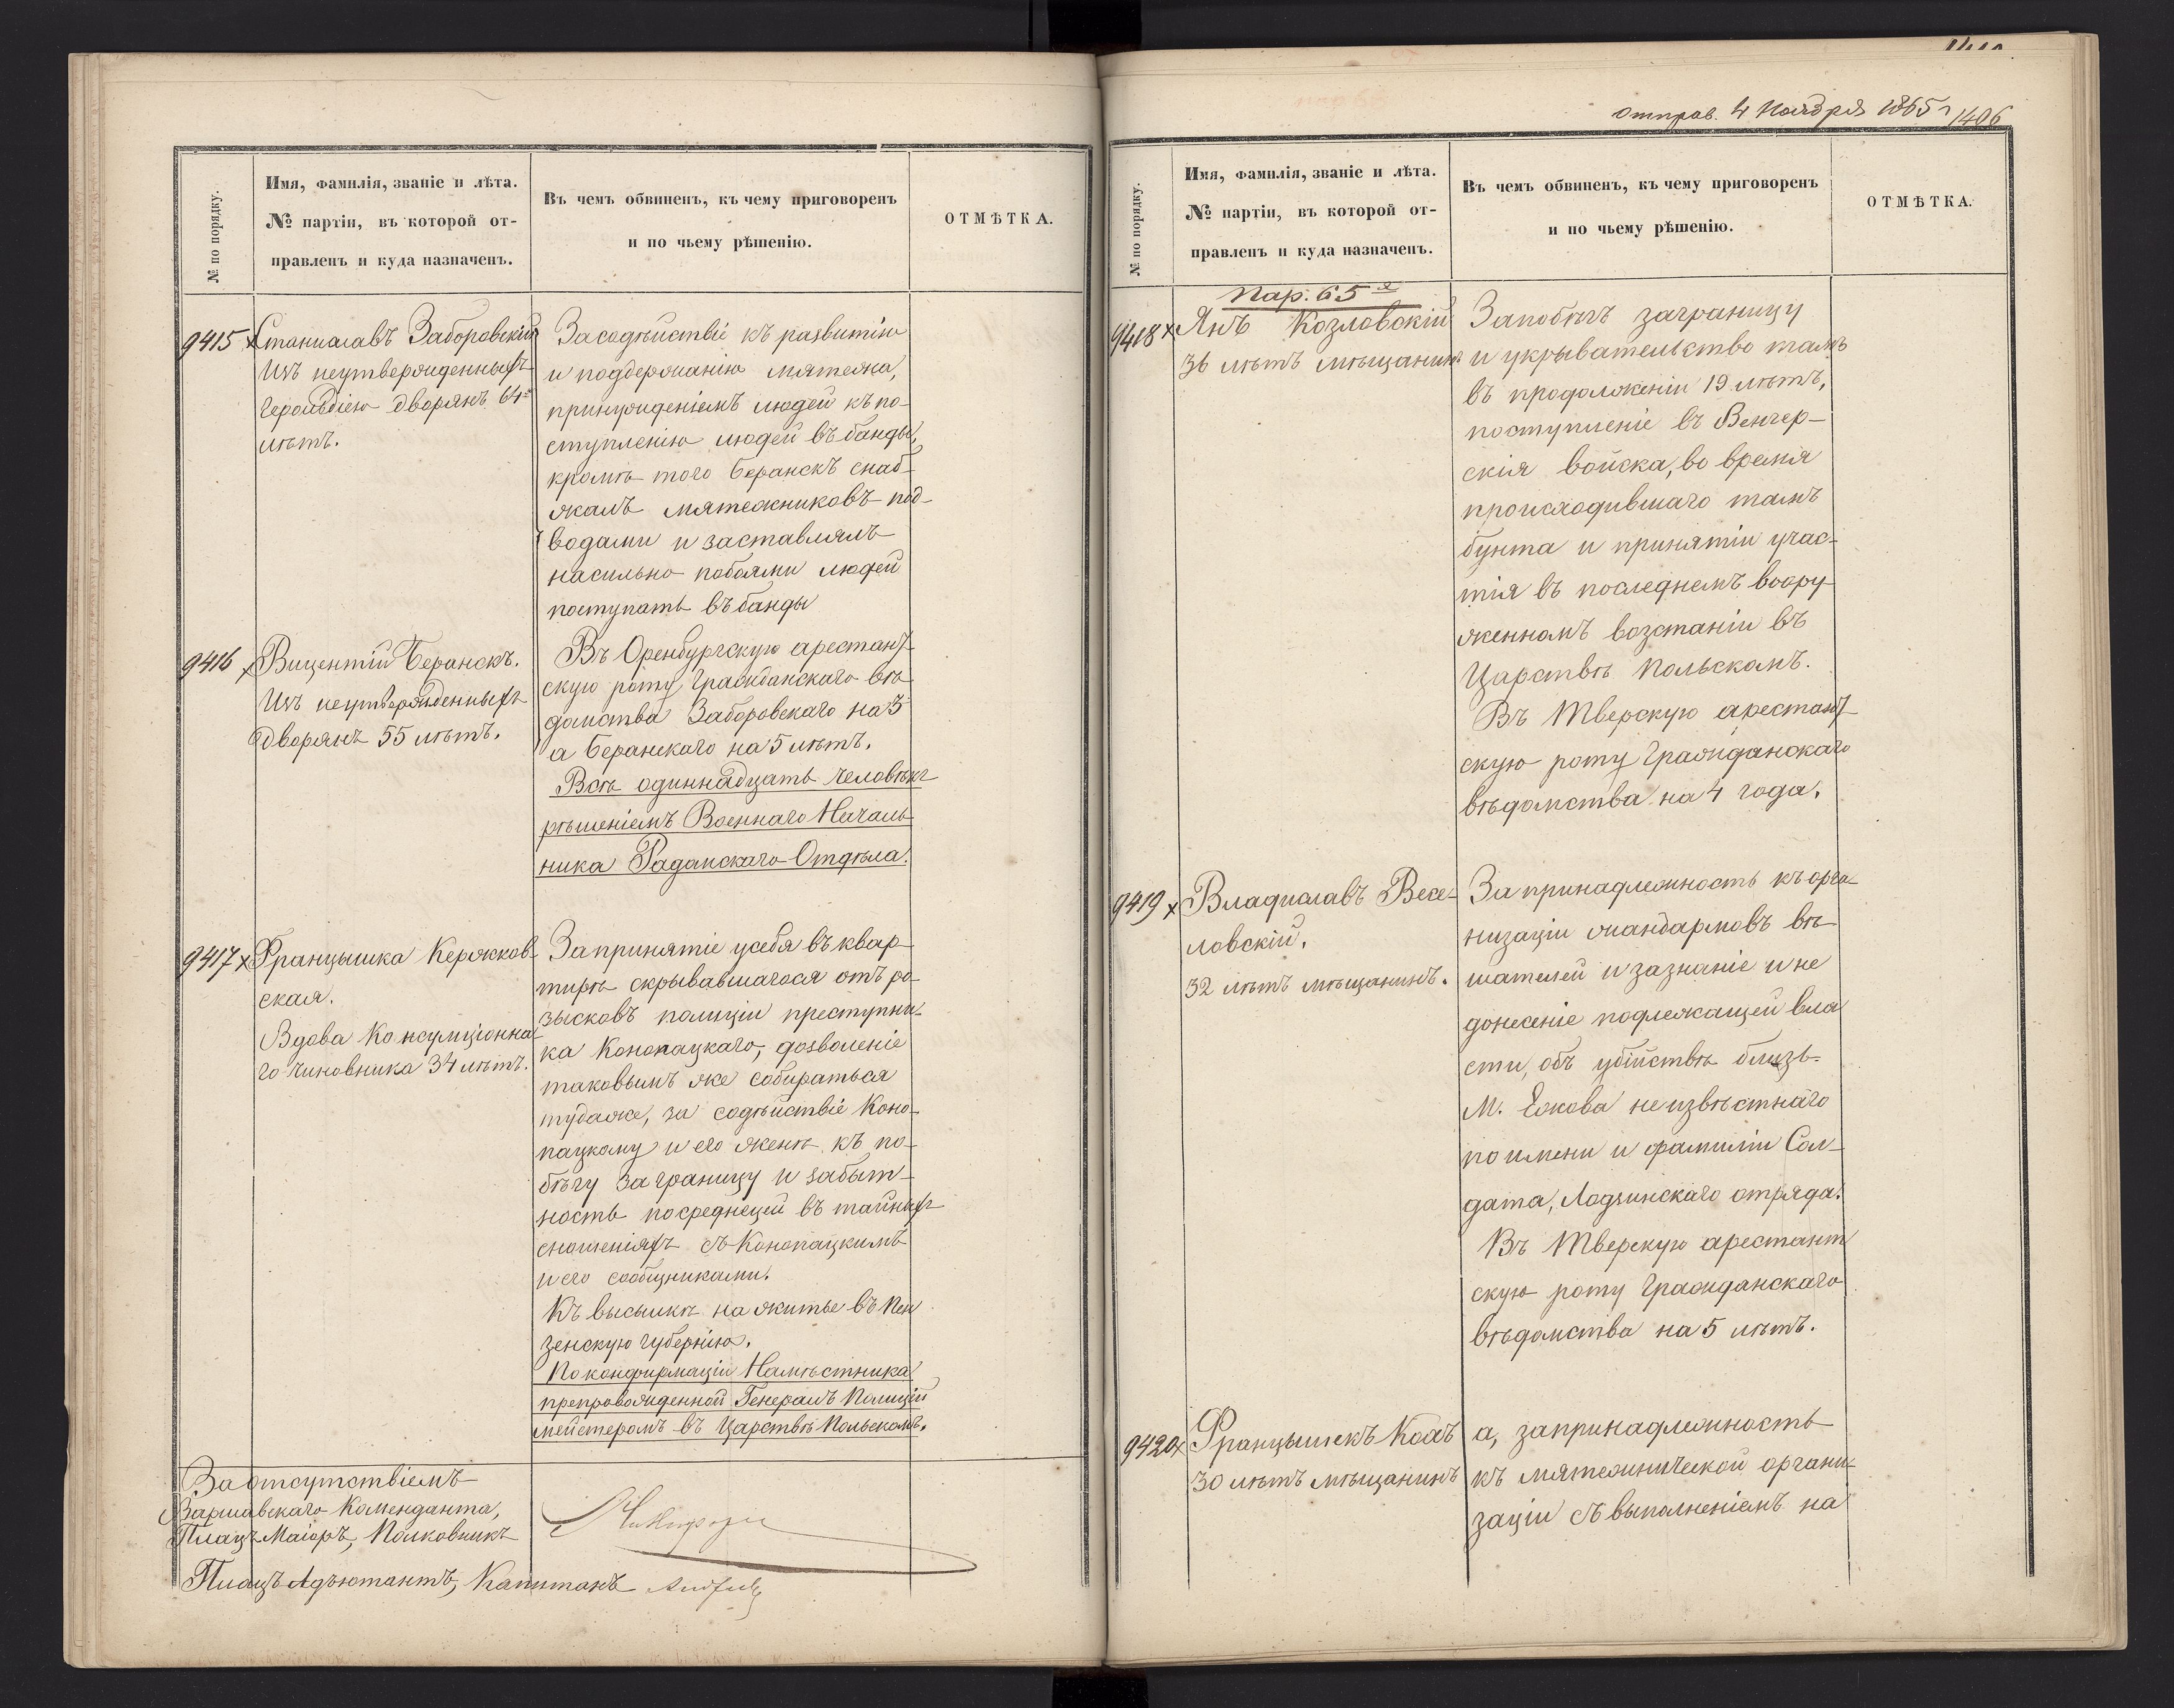 № по порядку.
Имя, фамилія, званіе и лѣта.
№ партіи, въ которой от-
правленъ и куда назначенъ.
Въ чемъ обвиненъ, къ чему приговоренъ
и по чьему рѣшенію.
ОТМѢТКА.
9415 x Станиславъ Заборовскій
Изъ неутвержденныхъ
герольдіею дворянъ 64
лѣтъ.
За содѣйствіе къ развитію
и поддержанію мятежа,
принужденіемъ людей къ по-
ступленію людей въ банды,
кромѣ того Беранскъ снаб-
жалъ мятежниковъ под-
водами и заставлялъ
насильно побоями людей
поступать въ банды
9416 x Вицентій Беранскъ.
Изъ неутвержденныхъ
дворянъ 55 лѣтъ.
Въ Оренбургскую арестант-
скую роту Гражданскаго вѣ-
домства Заборовскаго на 3
а Беранскаго на 5 лѣтъ.
Всѣ одиннадцать человѣкъ
рѣшеніемъ Военнаго Началь-
ника Радомскаго Отдѣла.
9417 x Францышка Кержков-
ская.
Вдова Консумціонна-
го чиновника 34 лѣтъ.
За принятіе у себя въ квар-
тирѣ скрывавшагося отъ ро-
зысковъ полиціи преступни-
ка Конопацкаго, дозволеніе
таковымъ же собираться
туда же, за содѣйствіе Коно-
пацкому и его женѣ къ по-
бѣгу за границу и забыт-
ность посредницей въ тайныхъ
сношеніяхъ съ Конопацкимъ
и его сообщниками.
Къ высылкѣ на житье въ Пен
зенскую губернію.
По конфирмаціи Намѣстника
препровожденной Генералъ Полицій
мейстеромъ въ Царствѣ Польскомъ.
За отсутствіемъ
Варшавскаго Коменданта,
Плацъ Маіоръ, Полковникъ
Плацъ Адъютантъ, Капитанъ
отправ. 4 Ноября 1865 г
1406
№ по порядку.
Имя, фамилія, званіе и лѣта.
№ партіи, въ которой от-
правленъ и куда назначенъ.
Въ чемъ обвиненъ, къ чему приговоренъ
и по чьему рѣшенію.
ОТМѢТКА.
Пар. 65 я
9418 x Янъ Козловскій
36 лѣтъ мѣщанинъ
За побѣгъ заграницу
и укрывательство тамъ
въ продолженіи 19 лѣтъ,
поступленіе въ Венгер-
скія войска, во время
происходившаго тамъ
бунта и принятіи учас-
тія въ послѣднемъ воору-
женномъ возстаніи въ
Царствѣ Польскомъ.
Въ Тверскую арестант-
скую роту Гражданскаго
вѣдомства на 4 года.
9419 x Владиславъ Весе-
ловскій.
32 лѣтъ мѣщанинъ.
За принадлежность къ орга-
низаціи жандармовъ вѣ-
шателей и за знаніе и не
донесеніе подлежащей вла
сти, объ убійствѣ близь
М. Ежова неизвѣстнаго
по имени и фамиліи Сол-
дата, Лодзинскаго отряда.
Въ Тверскую арестант
скую роту Гражданскаго
вѣдомства на 5 лѣтъ.
9420 x Францышекъ Кохъ
30 лѣтъ мѣщанинъ
а, за принадлежность
къ мятежнической органи-
заціи съ выполненіемъ на